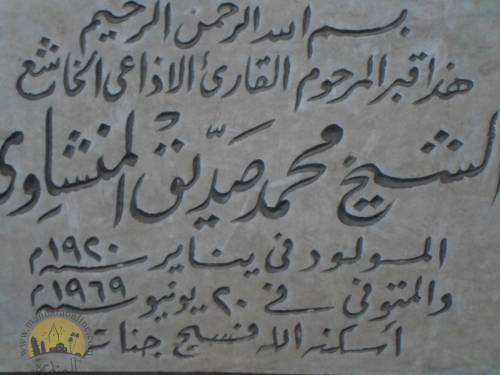 بسم الله الرحمن الرحيم
هذا قبر المرحوم القارئ الاذاعى الخاشع
الشيخ محمد صديق المنشاوى
المولود فى يناير سنة ١٩٢٠م
والمتوفى فى ٢٠ يونيو سنة ١٩٦٩م
أسكنه الله فسيح جنات